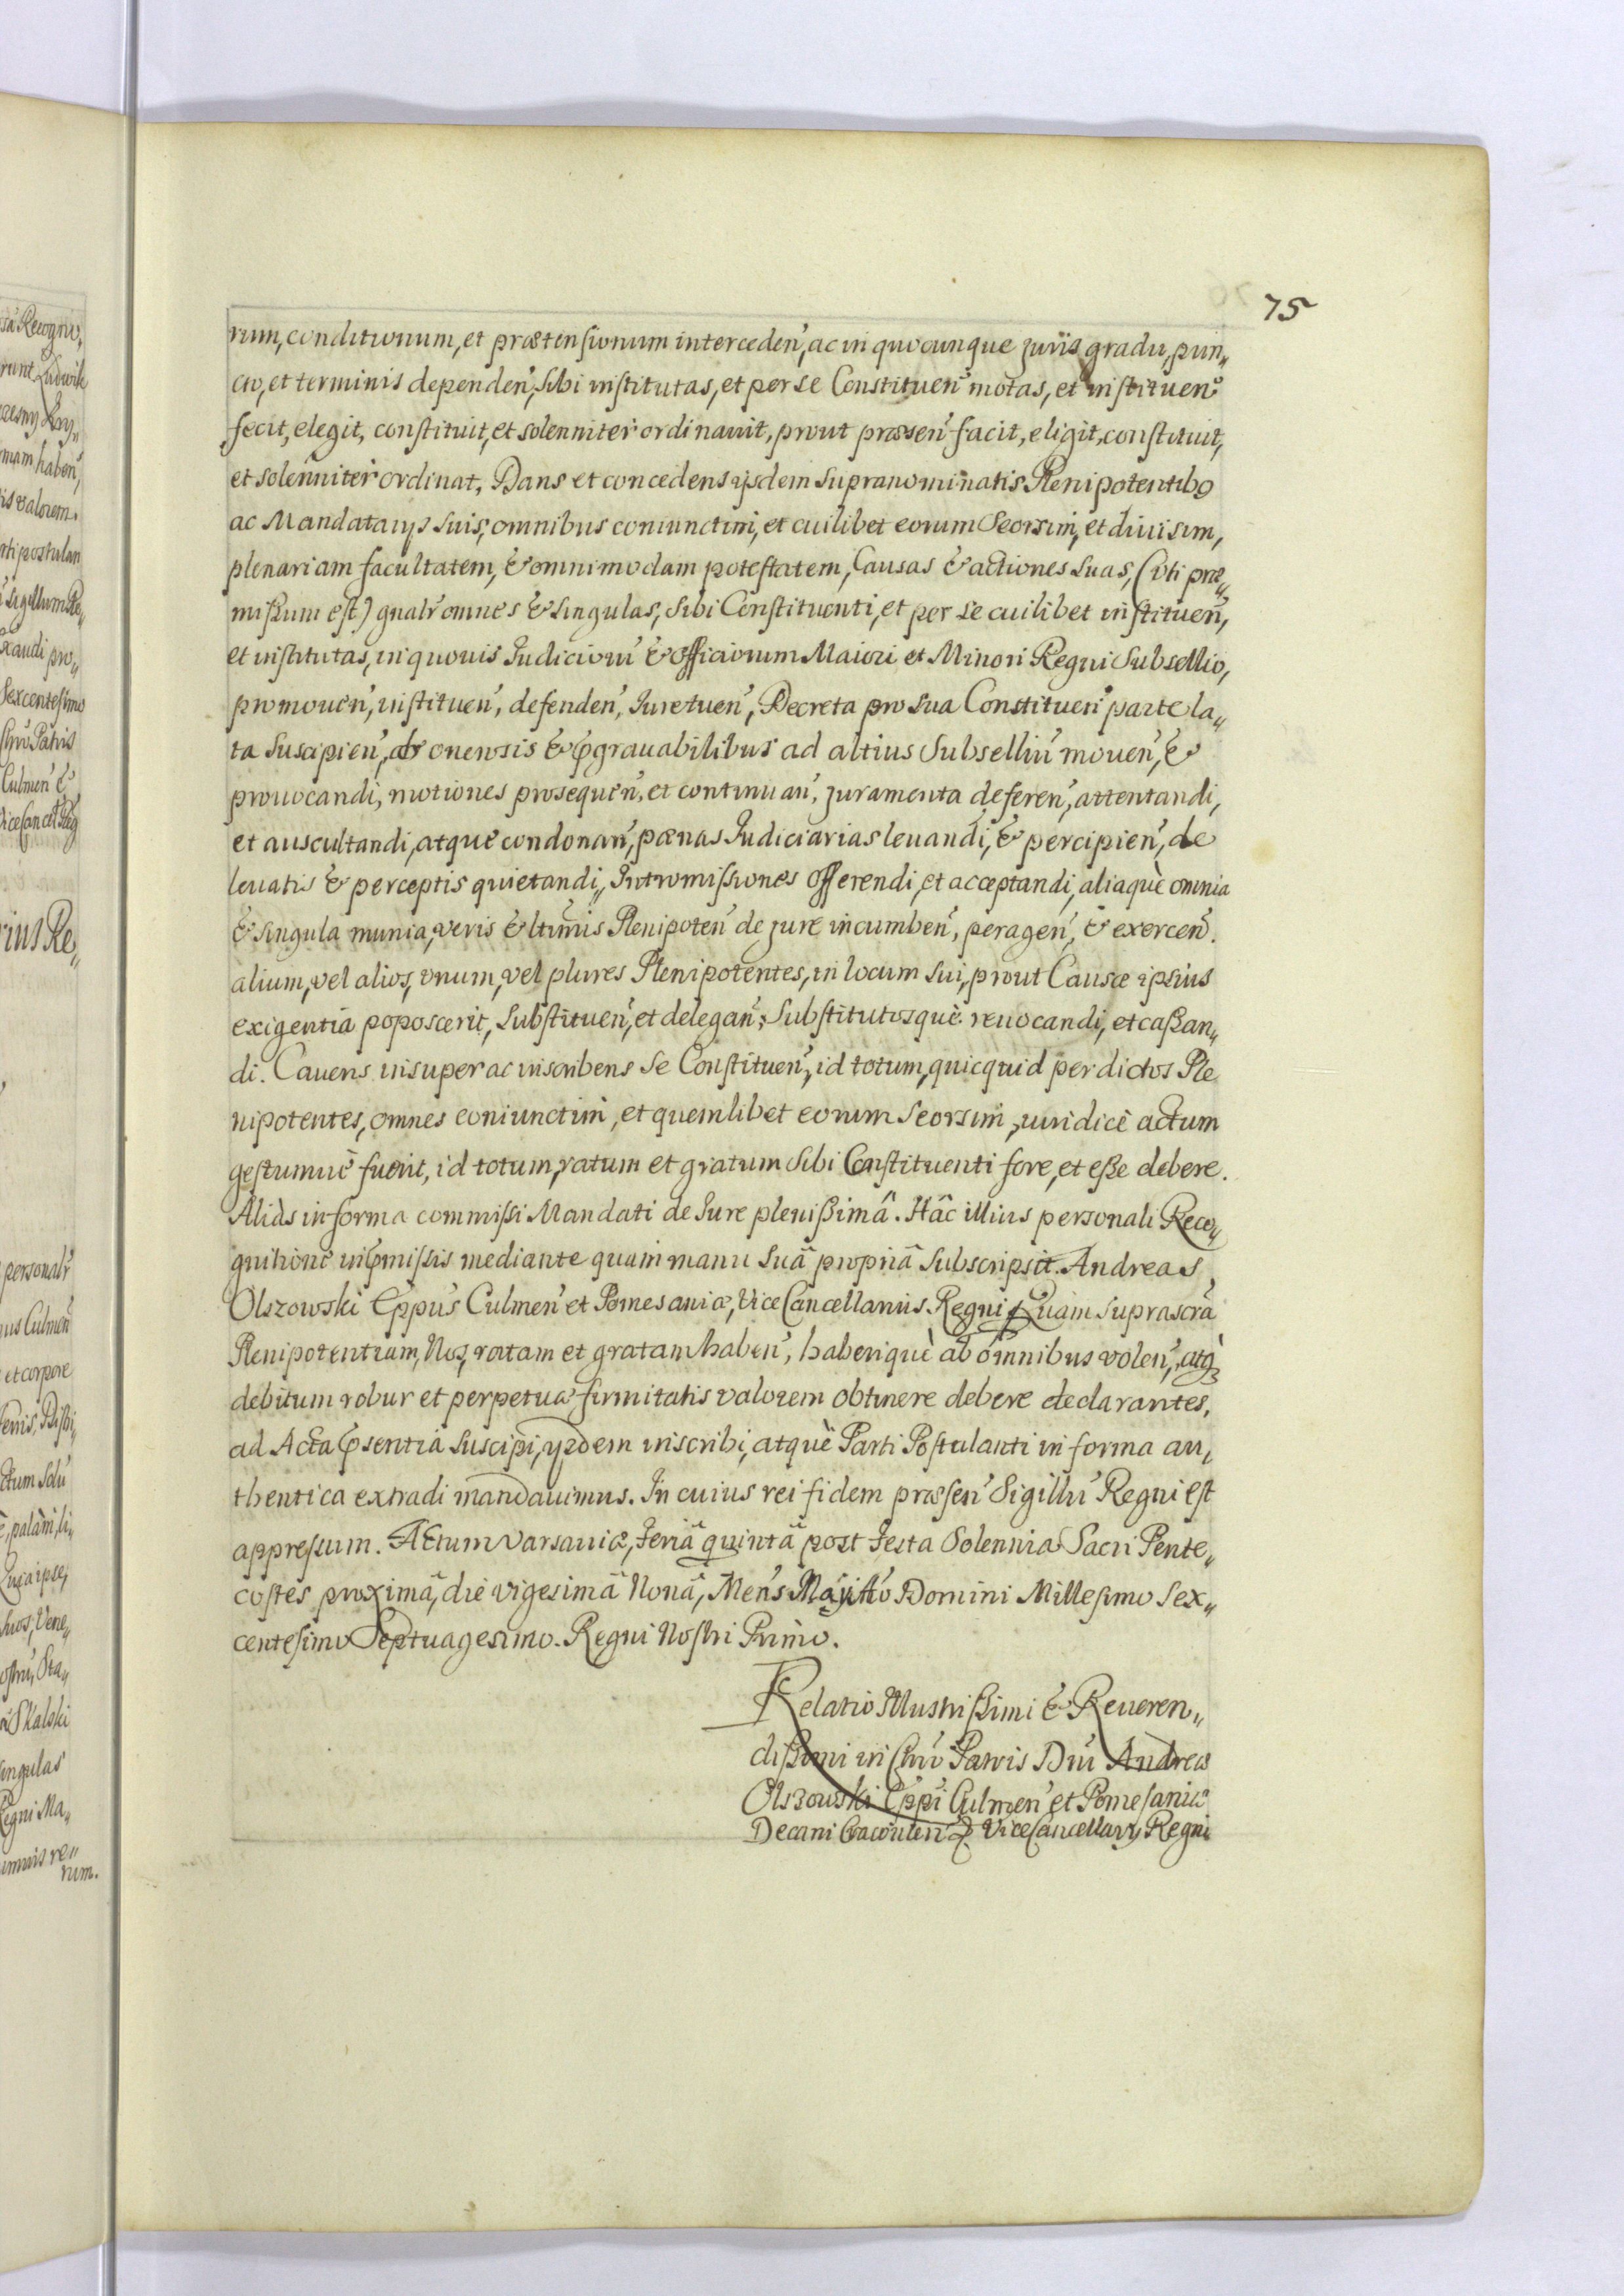 75
rum, conditionum, et prætensionum interceden̄, ac in quocunque juris gradu, pun„
cto, et terminis dependen̄, sibi institutas, et per se Constituen̄ motas, et instituen̄
fecit, elegit, constituit, et solenniter ordinauit, prout præsen̄ facit, eligit, constituit,
et solenniter ordinat, Dans et concedens ijsdem supranominatis Plenipotentibꝰ
ac Mandatarijs suis, omnibus coniunctim, et cuilibet eorum Seorsim, et diuisim,
plenariam facultatem, & omnimodam potestatem, Causas & actiones suas, (vti præ„
mißum est) gnalr̄ omnes & singulas, sibi Constituenti, et per se cuilibet instituen̄,
et institutas, in quouis Judiciorū & Officiorum Maiori et Minori Regni Subsellio,
promouen̄, instituen̄, defenden̄, Iuretuen̄, Decreta pro sua Constituen̄ parte la„
ta suscipien̄, ab onerosis & p̄grauabilibus ad altius Subselliū mouen̄, &
prouocandi, motiones prosequen̄, et continuan̄, juramenta deferen̄, attentandi,
et auscultandi, atque condonan̄, pœnas Judiciarias leuandi, & percipien̄, de
leuatis & perceptis quietandi„ Intromissiones Offerendi, et acceptandi, aliaquè omnia
& singula munia, veris & ltimis Plenipoten̄ de jure incumben̄, peragen̄, & exercen̄.
alium, vel alios, vnum, vel plures Plenipotentes, in locum sui, prout Causæ ipsius
exigentia poposcerit, substituen̄, et delegan̄, Substitutosquè reuocandi, et caßan„
di. Cauens insuper ac inscribens se Constituen̄, id totum, quicquid per dictos Ple
nipotentes, omnes coniunctim, et quemlibet eorum seorsim, juridicè actum
gestumuè fuerit, id totum, ratum et gratum sibi Constituenti fore, et eße debere.
Aliàs in forma commissi Mandati de Iure plenißimâ. Hâc illius personali Reco„
gnitione in p̄missis mediante quam manu suâ propriâ subscripsit. Andreas
Olszowski Eppus Culmen̄ et Pomesaniæ, ViceCancellarius Regni Quam suprascrā
Plenipotentiam, Nos, ratam et gratam haben̄, haberiquè ab omnibus volen̄, atq̀
debitum robur et perpetuæ firmitatis valorem obtinere debere declarantes,
ad Acta p̄sentia suscipi, ijsdem inscribi, atquè Parti Postulanti in forma au„
thentica extradi mandauimus. In cuius rei fidem præsen̄ Sigillū Regni est
appressum. Actum Varsauiæ, Feriâ quintâ post Festa Solennia Sacri Pente„
costes proximâ, die vigesimâ Nonâ, Mens Maij Ao Domini Millesimo Sex„
centesimo Septuagesimo. Regni Nostri Primo.
Relatio Illustrißimi & Reueren„
dißimi in Chrō Patris Dni Andreæ
Olszowski Eppi Culmen̄ et Pomesaniæ
Decani Cracouien̄ & ViceCancellarij Regni